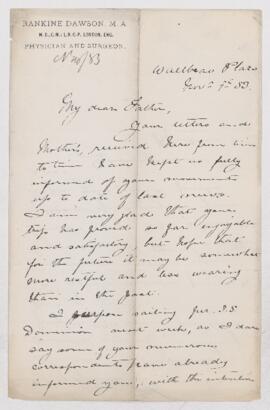 RANKINE DAWSON, M.A.
M.D., C.M.; L.R.C.P. LONDON, ENG.
PHYSICIAN AND SURGEON.
Nov 7/83
Nov. 7th 83.
My dear Father,
Your letters and
Mother's, received here from time
to time have kept us fully
informed of your movements
up to date of last news.
I am very glad that your
trip has proved so far enjoyable
and satisfactory, but hope that
for the future it may be somewhat
more restful and less wearing
than in the past.
I purpose sailing per S.S.
Dominion next week, as I dare
say some of your numerous
correspondents have already
informed you, with the intention